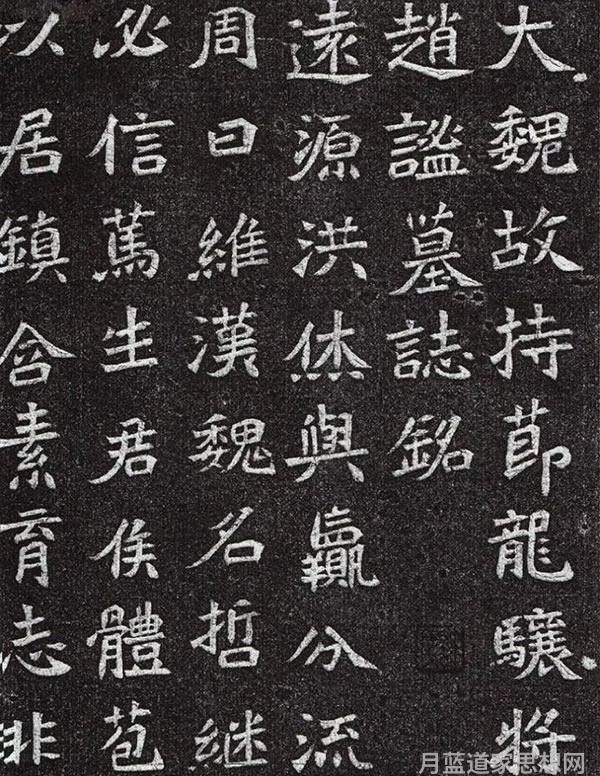 大魏故持節龍驤將
趙謐墓誌銘
遠源洪休與贏分流
周曰維漢魏名哲継
必信篤生君侯體苞
以居鎮含素育志非
月蓝道家思想网